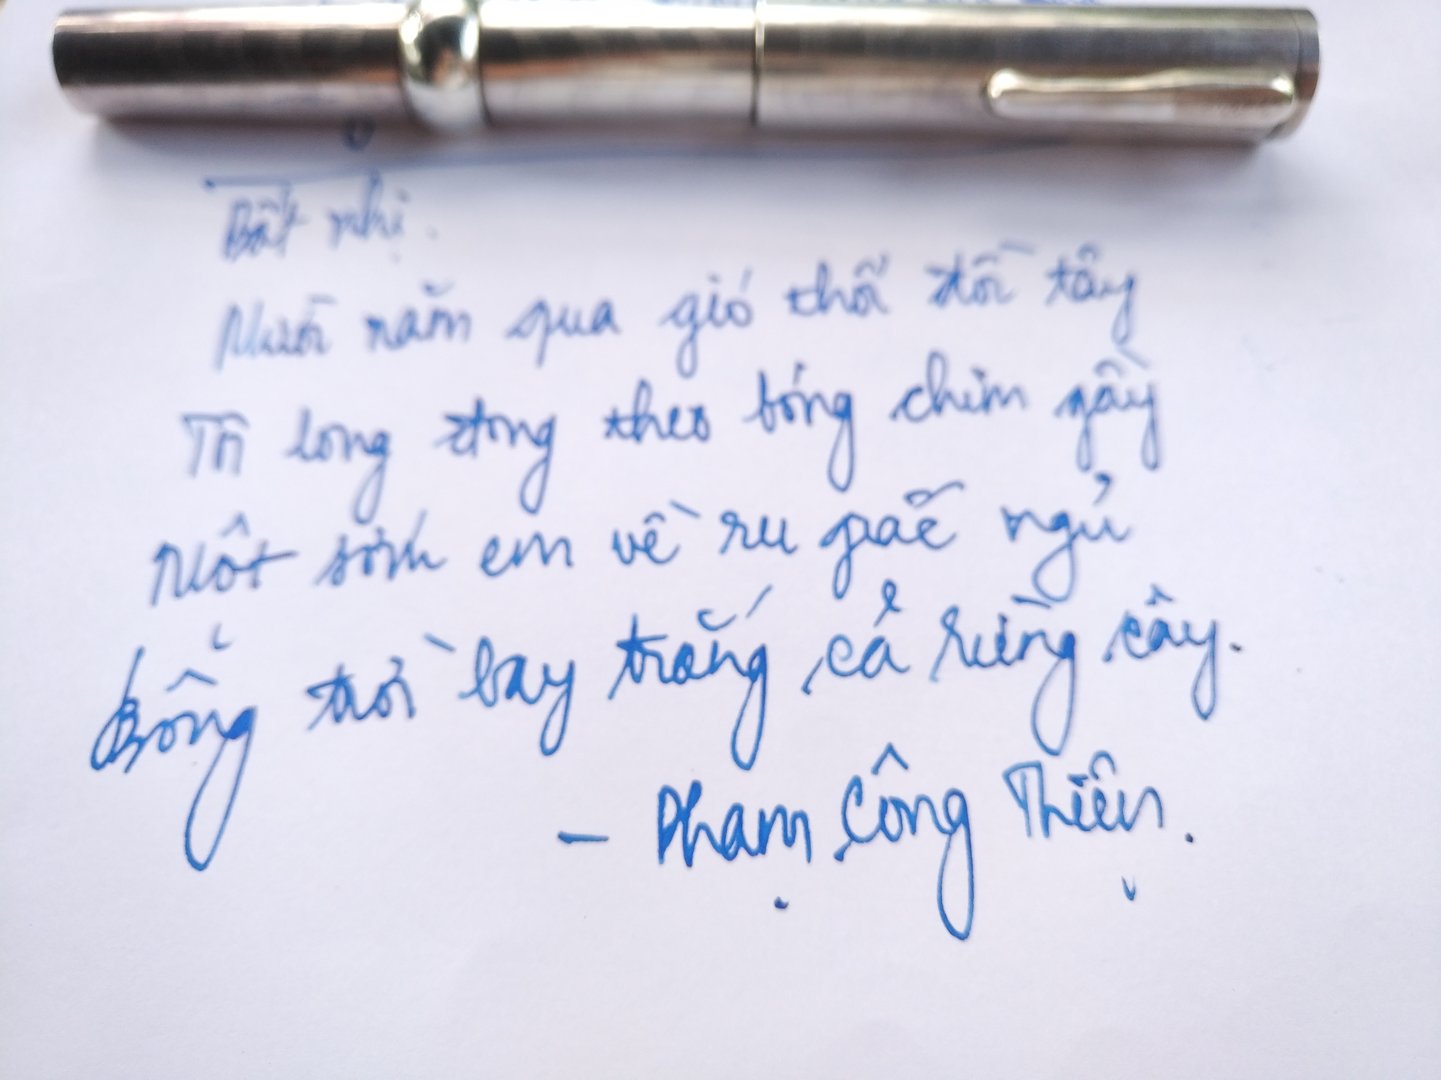 Bất nhị.
Mười năm qua gió thổi đồi tây
Tôi long đong theo bóng chim gầy
Một sớm em về ru giấc ngủ
Bông trời bay trắng cả rừng cây.
- Phạm Công Thiện.